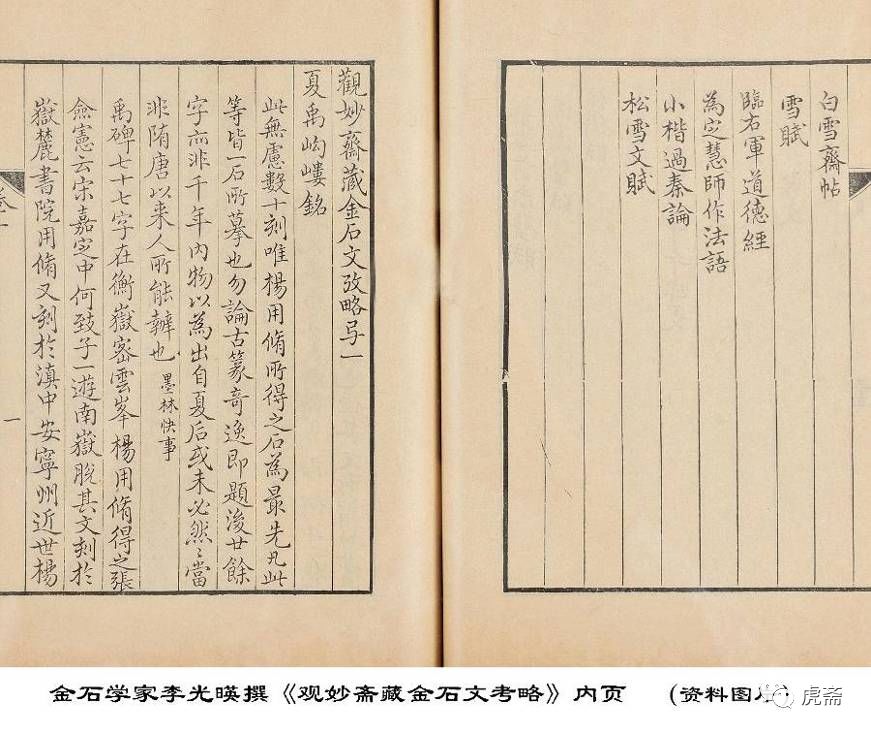 白雪齋帖
雪賦
臨右軍道德經
為定慧師作法語
小楷過秦論
松雪文賦
觀妙齋藏金石文攷略弓一
夏禹岣嶁銘
此無慮數十刻唯楊用脩所得之石為最先凡此
等皆一石所摹也勿論古篆奇逸即題後廿餘
字亦非千年內物以為出自夏后或未必然〻當
非隋唐以来人所能辦也 墨林快事
禹碑七十七字在衡嶽密雲峯楊用脩得之張
僉憲云宋嘉定中何致子一遊南嶽脫其文刻於
嶽麓書院用脩又刻於滇中安寧州近世楊
一
金石学家李光暎撰《观妙斋藏金石文考略》内页 (资料图片)
虎斋